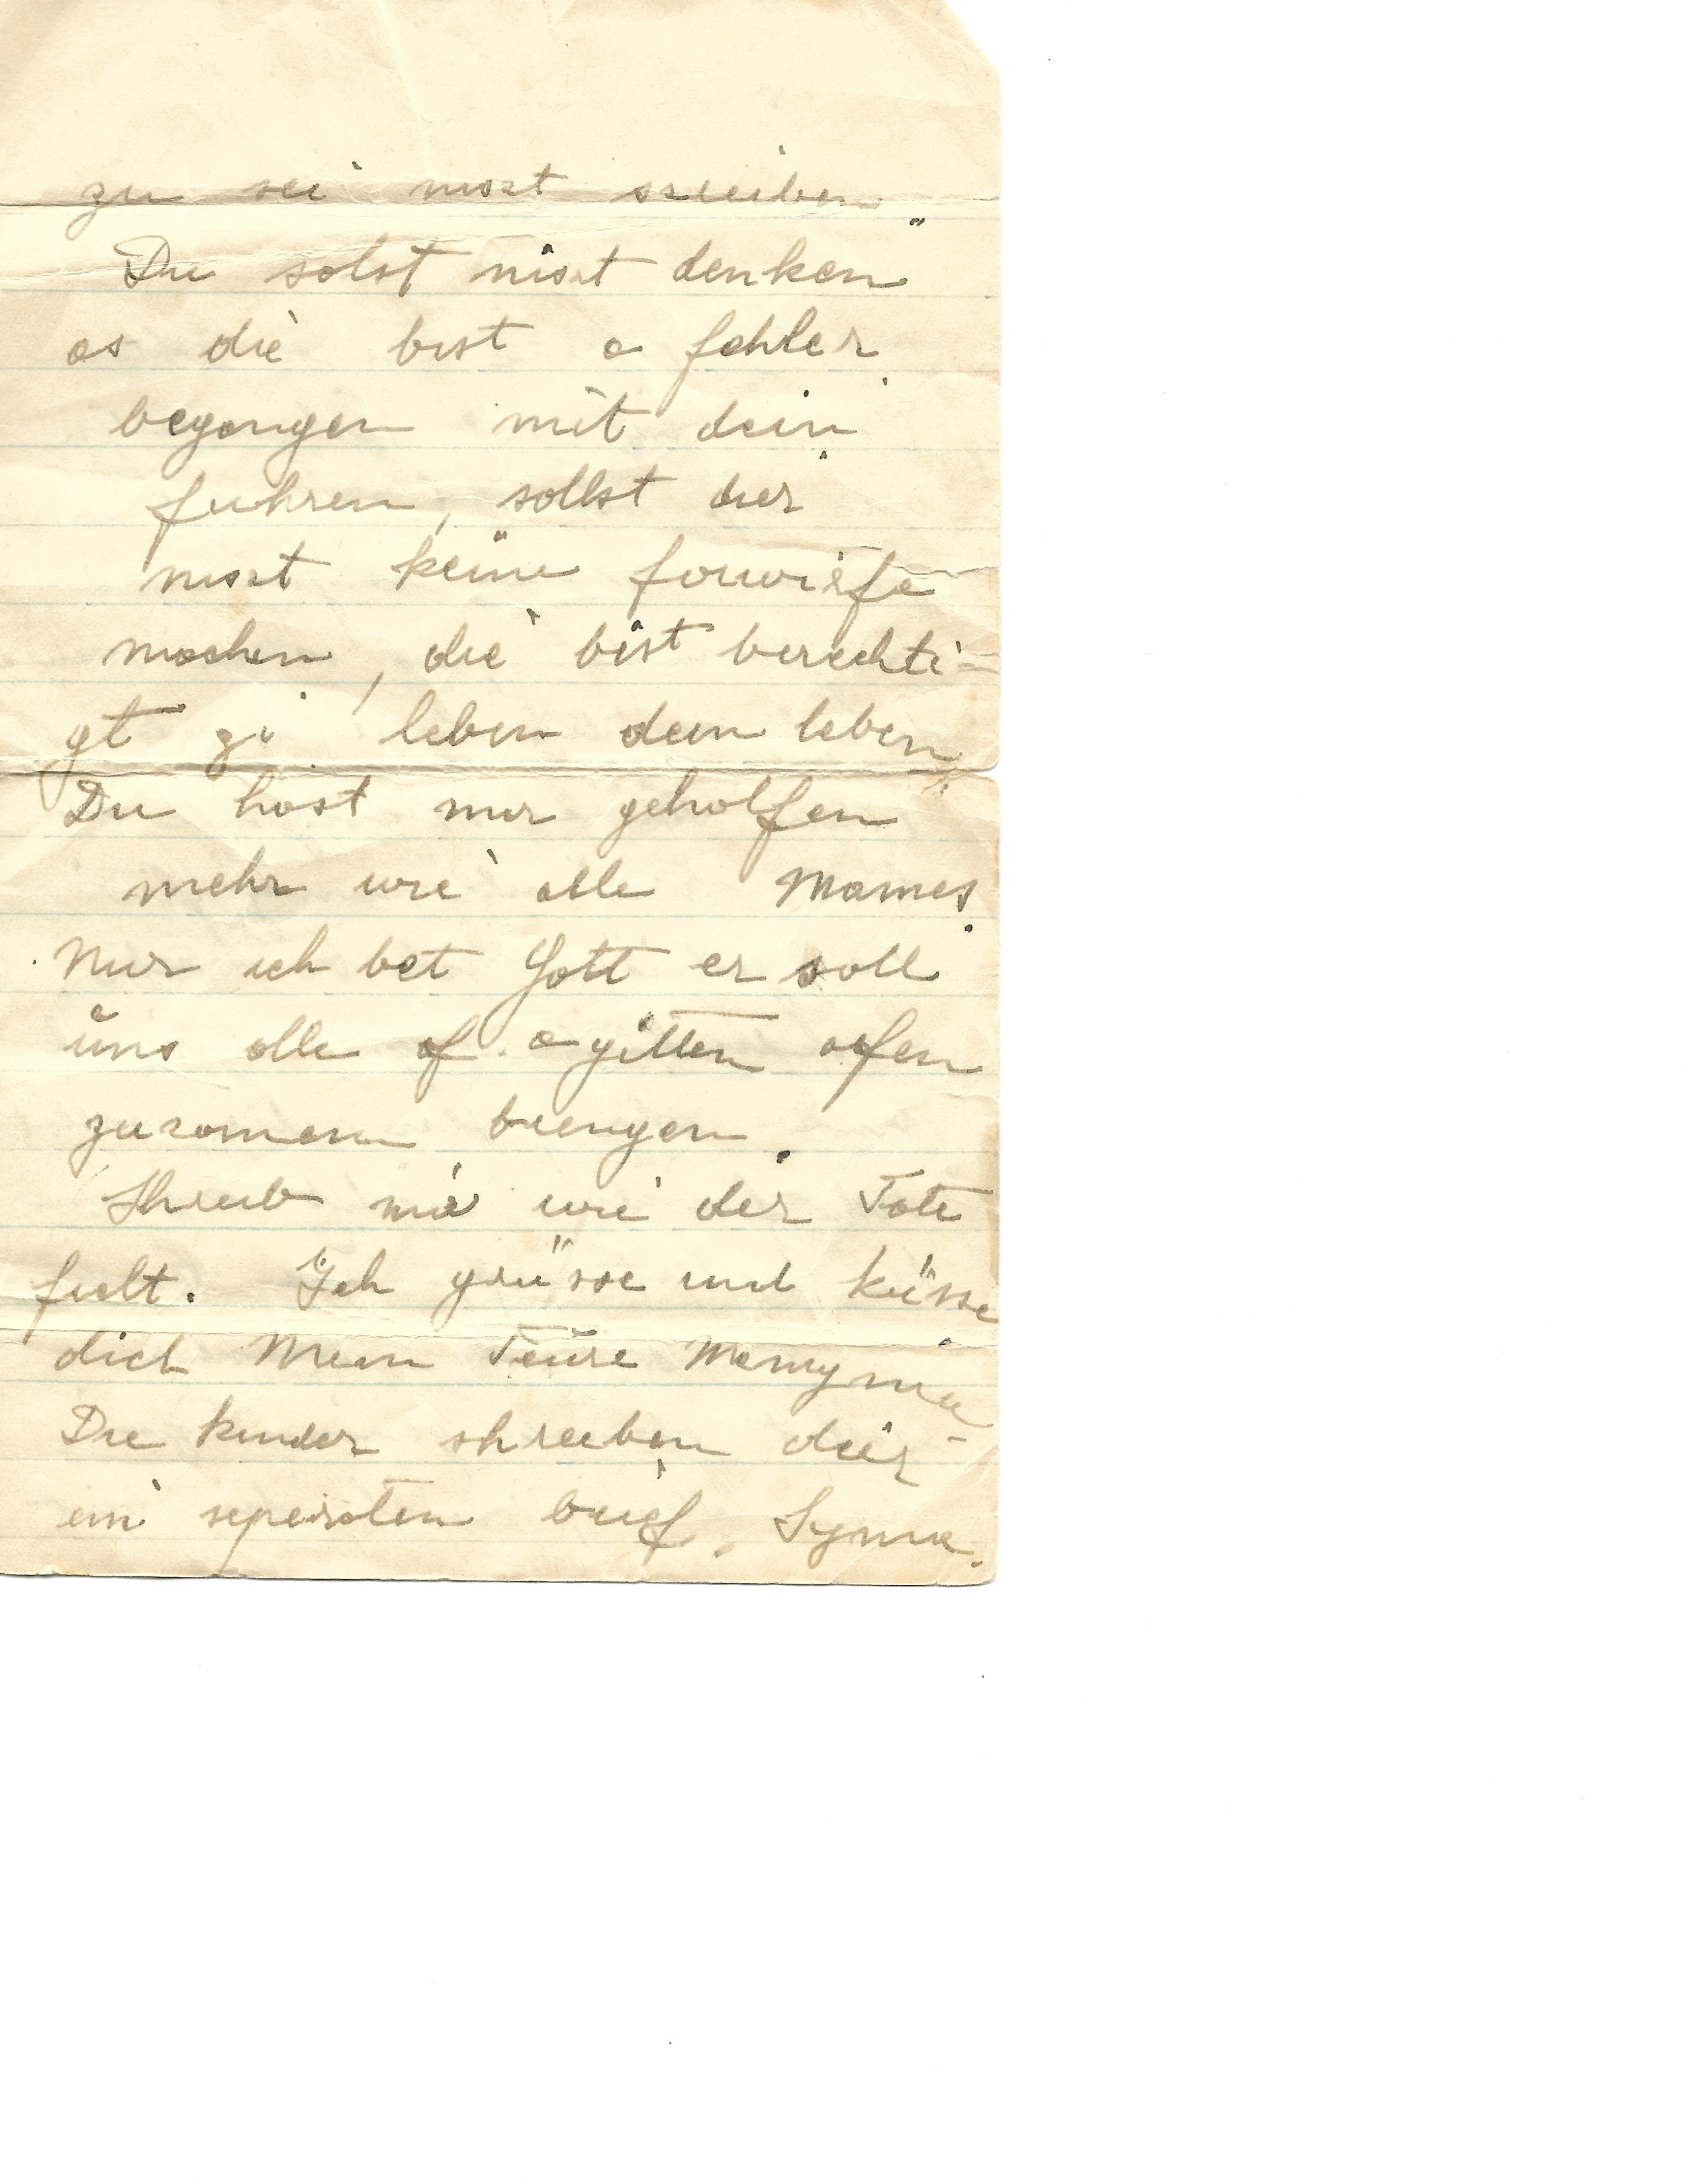 zu sei niszt szreiben
Du solst niszt denken
as die bist a fehler
begangen mit dein
fuhren, sollst dir
niszt keine forwirfe
machen, die bist berechti-
gt zi leben dein leben
Du host mir geholfen
mehr wie alle Mames.
Nur ich bet Gott er soll
uns alle af a gitten ofen
zusamen brengen.
Shreib mir wie der Tate
fielt. Ich grüsse und küsse
dich Mein Teure Mamynia
Die kinder shreiben dir
ein seperaten brief. Syma.